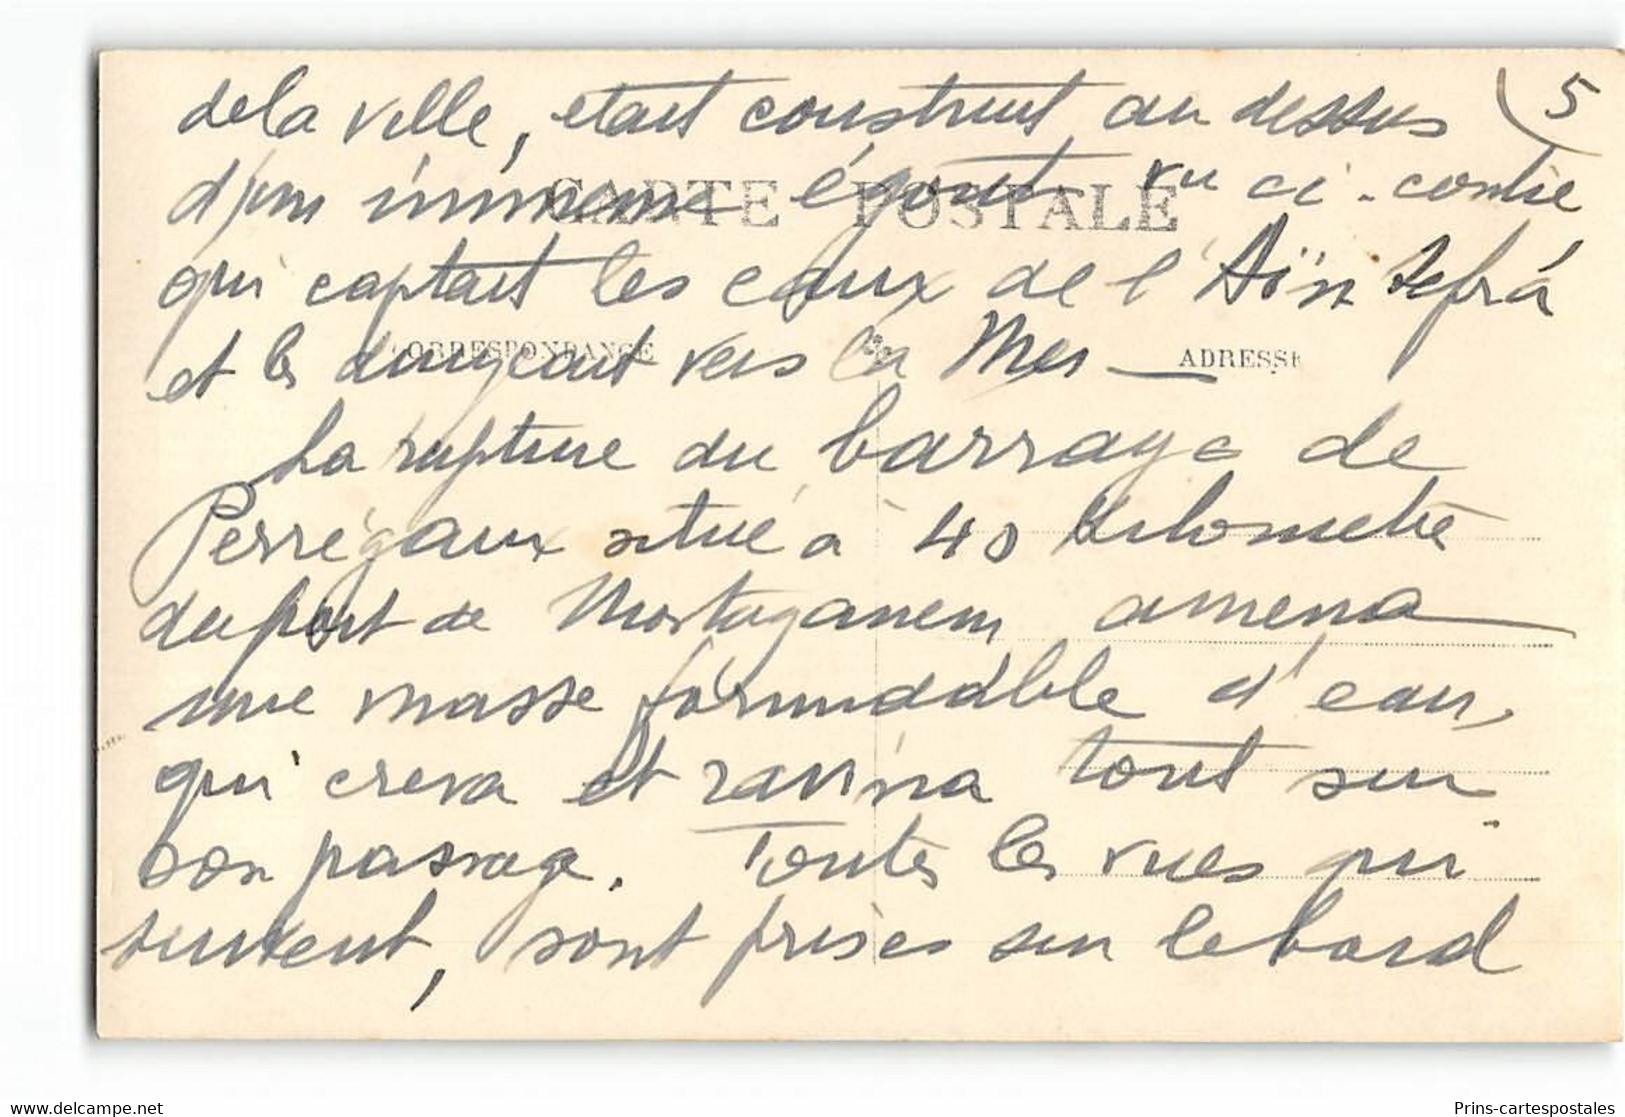 de la ville, etait construit au dessus 5
d'un immense égout vu ci-contre
CARTE POSTALE
qui captait les eaux de l'Aïn Sefrá
et les dirigeait vers la Mer —
CORRESPONDANCE ADRESSE
La rupture du barrage de
Perrégaux situé à 40 kilometre
du port de Mostaganem amena
une masse formidable d'eau,
qui creva et ravina tout sur
son passage. Toutes les vues qui
suivent, sont prises sur le bord
www.delcampe.net
Prins-cartespostales